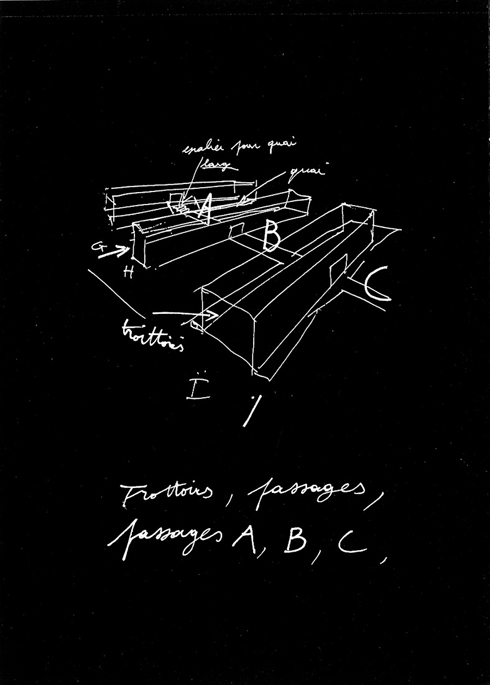 escalier pour quai
long
quai
A
B
G
H
C
trottoirs
Ï
Trottoirs, passages,
passages A, B, C,